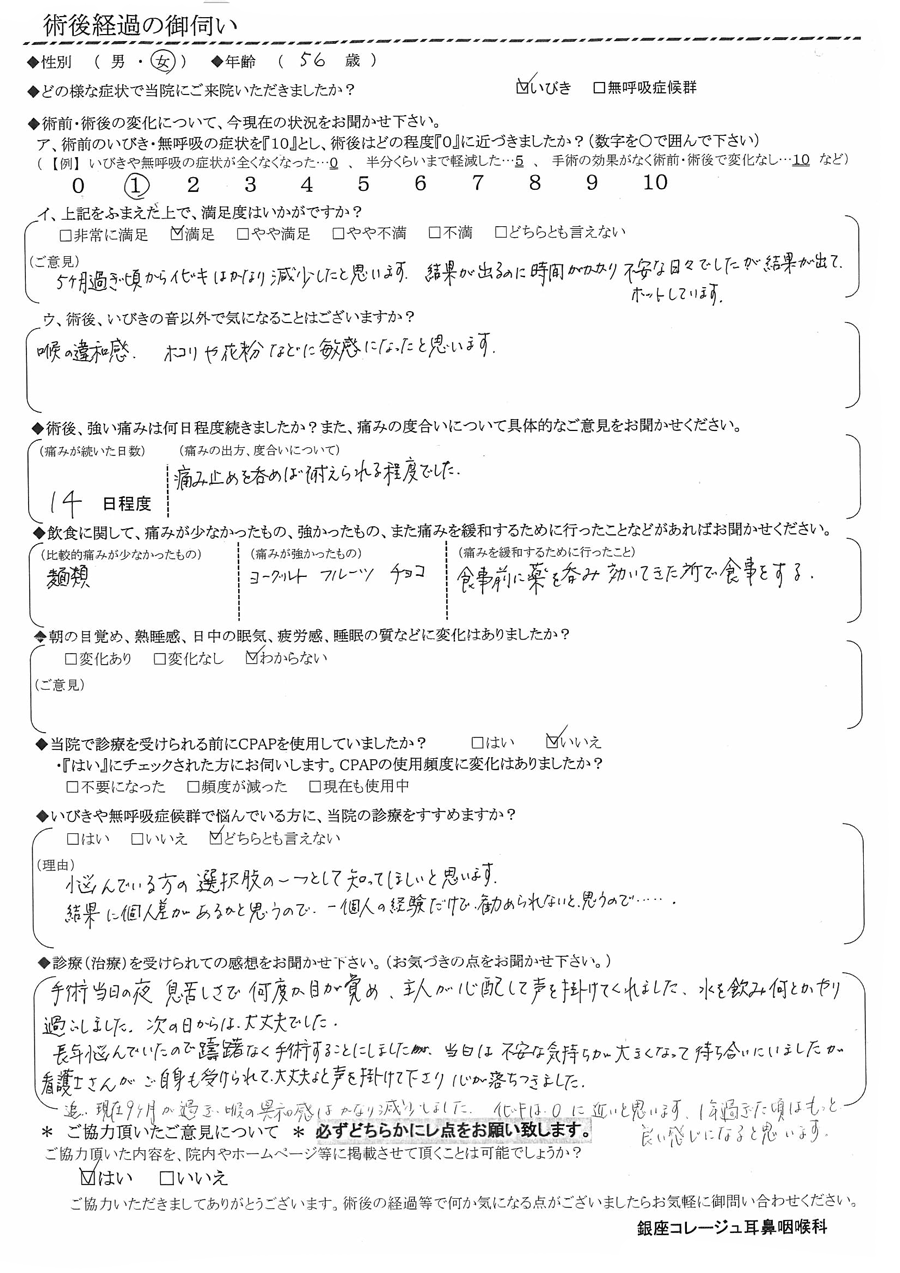 術後経過の御伺い
◆性別 ( 男 ・ 女 ) ◆年齢 ( 56 歳 )
◆どの様な症状で当院にご来院いただきましたか? ☑いびき □無呼吸症候群
◆術前・術後の変化について、今現在の状況をお聞かせ下さい。
ア、術前のいびき・無呼吸の症状を『10』とし、術後はどの程度『0』に近づきましたか?(数字を○で囲んで下さい)
(【例】いびきや無呼吸の症状が全くなくなった…0 、 半分くらいまで軽減した…5 、 手術の効果がなく術前・術後で変化なし…10 など)
0 ① 2 3 4 5 6 7 8 9 10
イ、上記をふまえた上で、満足度はいかがですか?
□非常に満足 ☑満足 □やや満足 □やや不満 □不満 □どちらとも言えない
(ご意見)
5ケ月過ぎ頃からイビキはかなり減少したと思います. 結果が出るのに時間がかかり 不安な日々でしたが結果が出て.
ホットしています.
ウ、術後、いびきの音以外で気になることはございますか?
喉の違和感. ホコリや花粉などに敏感になったと思います.
◆術後、強い痛みは何日程度続きましたか?また、痛みの度合いについて具体的なご意見をお聞かせください。
(痛みが続いた日数) (痛みの出方、度合いについて)
痛み止めを呑めば耐えられる程度でした.
14 日程度
◆飲食に関して、痛みが少なかったもの、強かったもの、また痛みを緩和するために行ったことなどがあればお聞かせください。
(比較的痛みが少なかったもの) (痛みが強かったもの) (痛みを緩和するために行ったこと)
麺類 ヨーグルト フルーツ チョコ 食事前に薬を呑み 効いてきた所で食事をする.
◆朝の目覚め、熟睡感、日中の眠気、疲労感、睡眠の質などに変化はありましたか?
□変化あり □変化なし ☑わからない
(ご意見)
◆当院で診療を受けられる前にCPAPを使用していましたか? □はい ☑いいえ
・『はい』にチェックされた方にお伺いします。CPAPの使用頻度に変化はありましたか?
□不要になった □頻度が減った □現在も使用中
◆いびきや無呼吸症候群で悩んでいる方に、当院の診療をすすめますか?
□はい □いいえ ☑どちらとも言えない
(理由)
悩んでいる方の選択肢の一つとして知ってほしいと思います.
結果に個人差があるかと思うので. 一個人の経験だけで.勧められないと.思うので……
◆診療(治療)を受けられての感想をお聞かせ下さい。(お気づきの点をお聞かせ下さい。)
手術当日の夜 息苦しさで 何度か目が覚め、主人が心配して声を掛けてくれました、水を飲み何とかやり
過ごしました. 次の日からは、大丈夫でした.
長年悩んでいたので躊躇なく手術することにしましたが、当日は 不安な気持ちが大きくなって待ち合いにいましたが
看護士さんが ご自身も受けられて、大丈夫よと声を掛けて下さり 心が落ちつきました.
追. 現在9ヶ月が過ぎ、喉の異和感はかなり減少しました. イビキは0に近いと思います. 1年過ぎた頃はもっと
良い感じになると思います.
* ご協力頂いたご意見について * 必ずどちらかにレ点をお願い致します。
ご協力頂いた内容を、院内やホームページ等に掲載させて頂くことは可能でしょうか?
☑はい □いいえ
ご協力いただきましてありがとうございます。術後の経過等で何か気になる点がございましたらお気軽に御問い合わせください。
銀座コレージュ耳鼻咽喉科